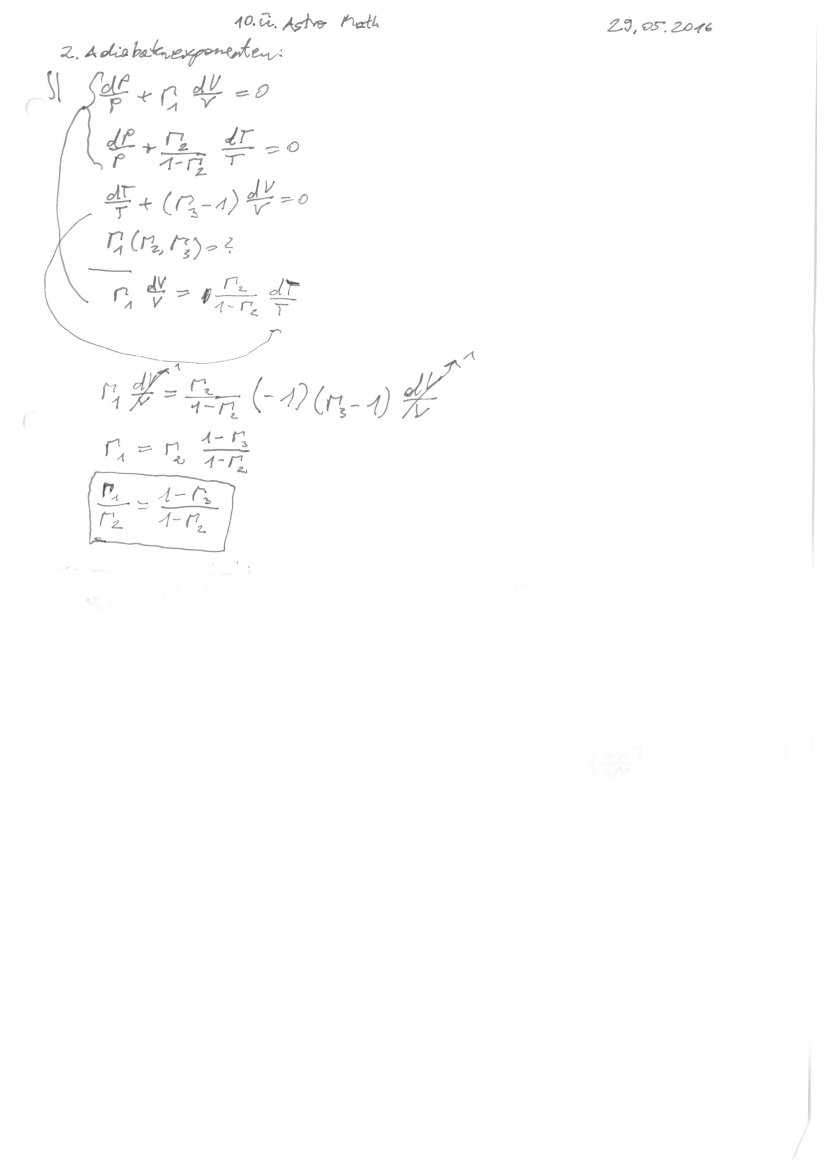 10. Ü. Astro Math 29.05.2016
2. Adiabatenexponenten:
dP/P + Γ₁ dV/V = 0
dP/P + Γ₂/(1-Γ₂) dT/T = 0
dT/T + (Γ₃-1) dV/V = 0
Γ₁(Γ₂, Γ₃) = ?
Γ₁ dV/V = Γ₂/(1-Γ₂) dT/T
Γ₁ dV/V ↗1 = Γ₂/(1-Γ₂) (-1)(Γ₃-1) dV/V ↗1
Γ₁ = Γ₂ (1-Γ₃)/(1-Γ₂)
Γ₁/Γ₂ = (1-Γ₃)/(1-Γ₂)